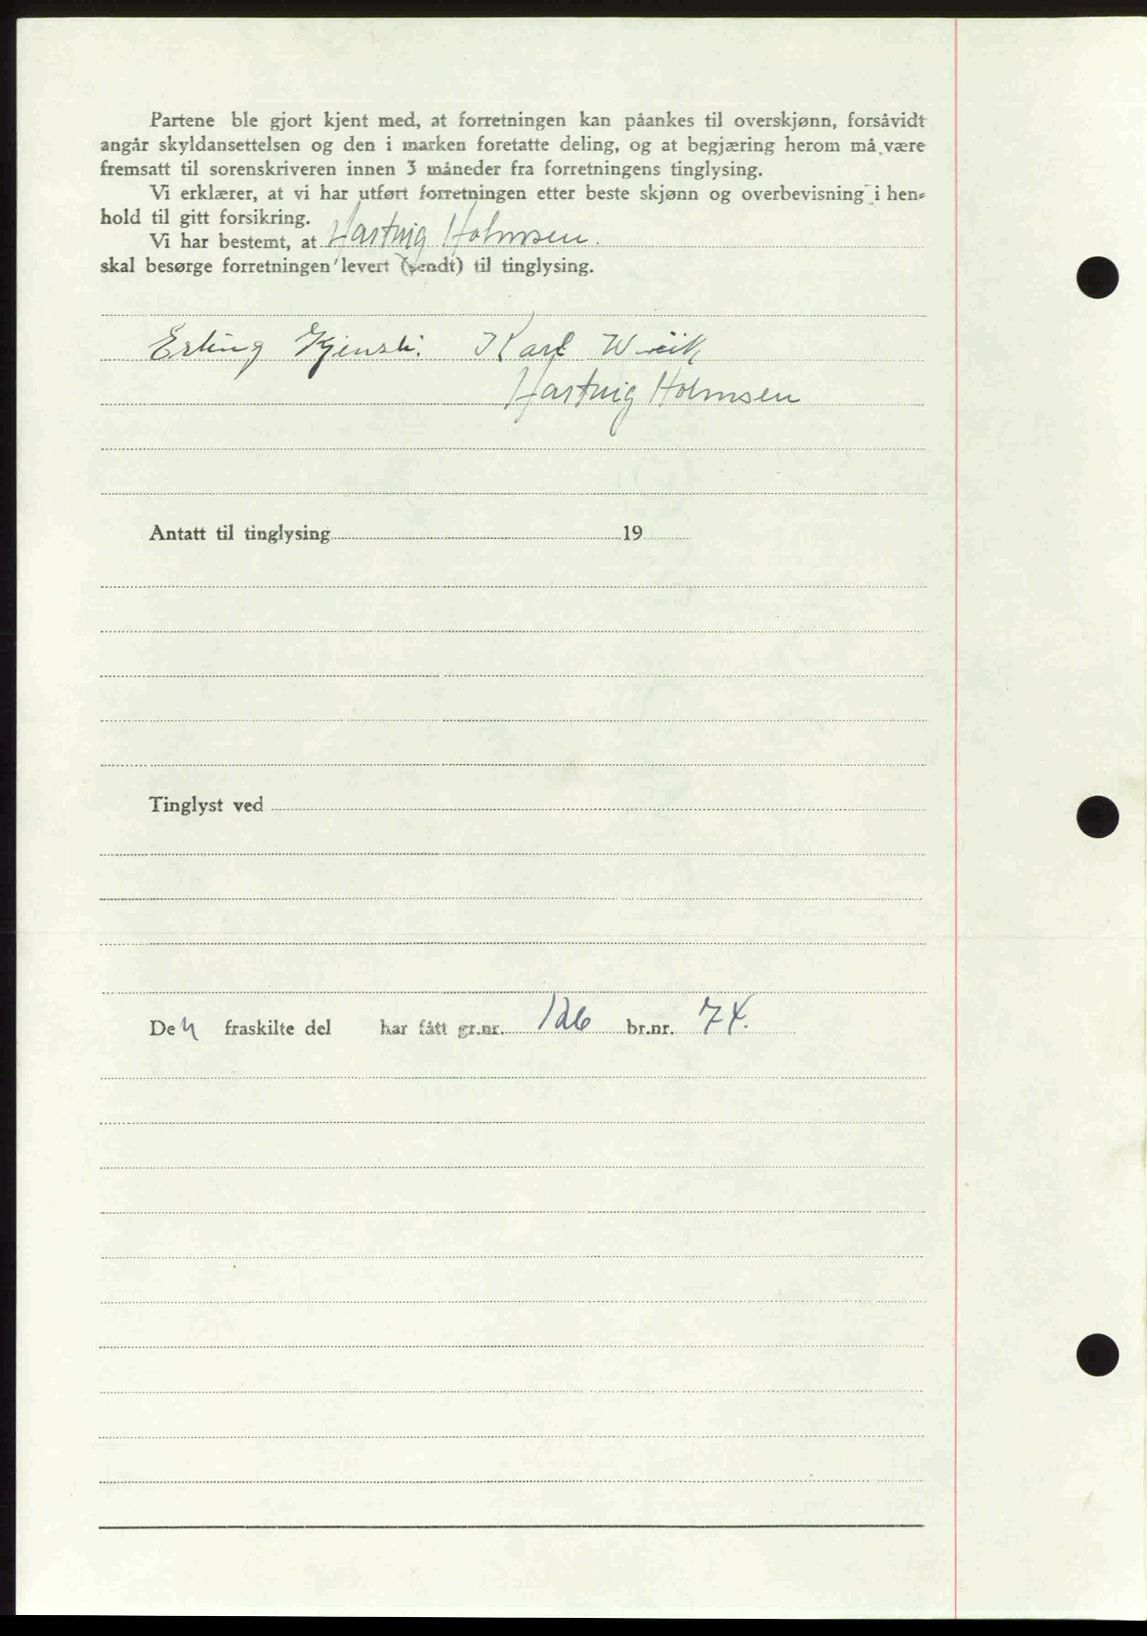 Partene ble gjort kjent med, at forretningen kan påankes til overskjønn, forsåvidt
angår skyldansettelsen og den i marken foretatte deling, og at begjæring herom må være
fremsatt til sorenskriveren innen 3 måneder fra forretningens tinglysing.
Vi erklærer, at vi har utført forretningen etter beste skjønn og overbevisning i hen-
hold til gitt forsikring.
Vi har bestemt, at Hartvig Holmsen.
skal besørge forretningen levert (sendt) til tinglysing.
Erling Karl
Hartvig Holmsen
Antatt til tinglysing 19
Tinglyst ved
Den fraskilte del har fått gr.nr. 126 br.nr. 74.